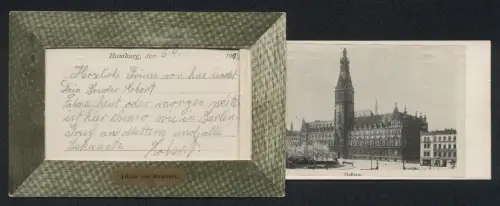 Hamburg, den 6/4. 190
Herzliche Grüsse von hier sendet
Dein Bruder Robert
Fahre heut oder morgen weit
ist hier ebenso wie in Berlin
Gruss an Muttern und alle
Bekannte Robert.
Rathaus.